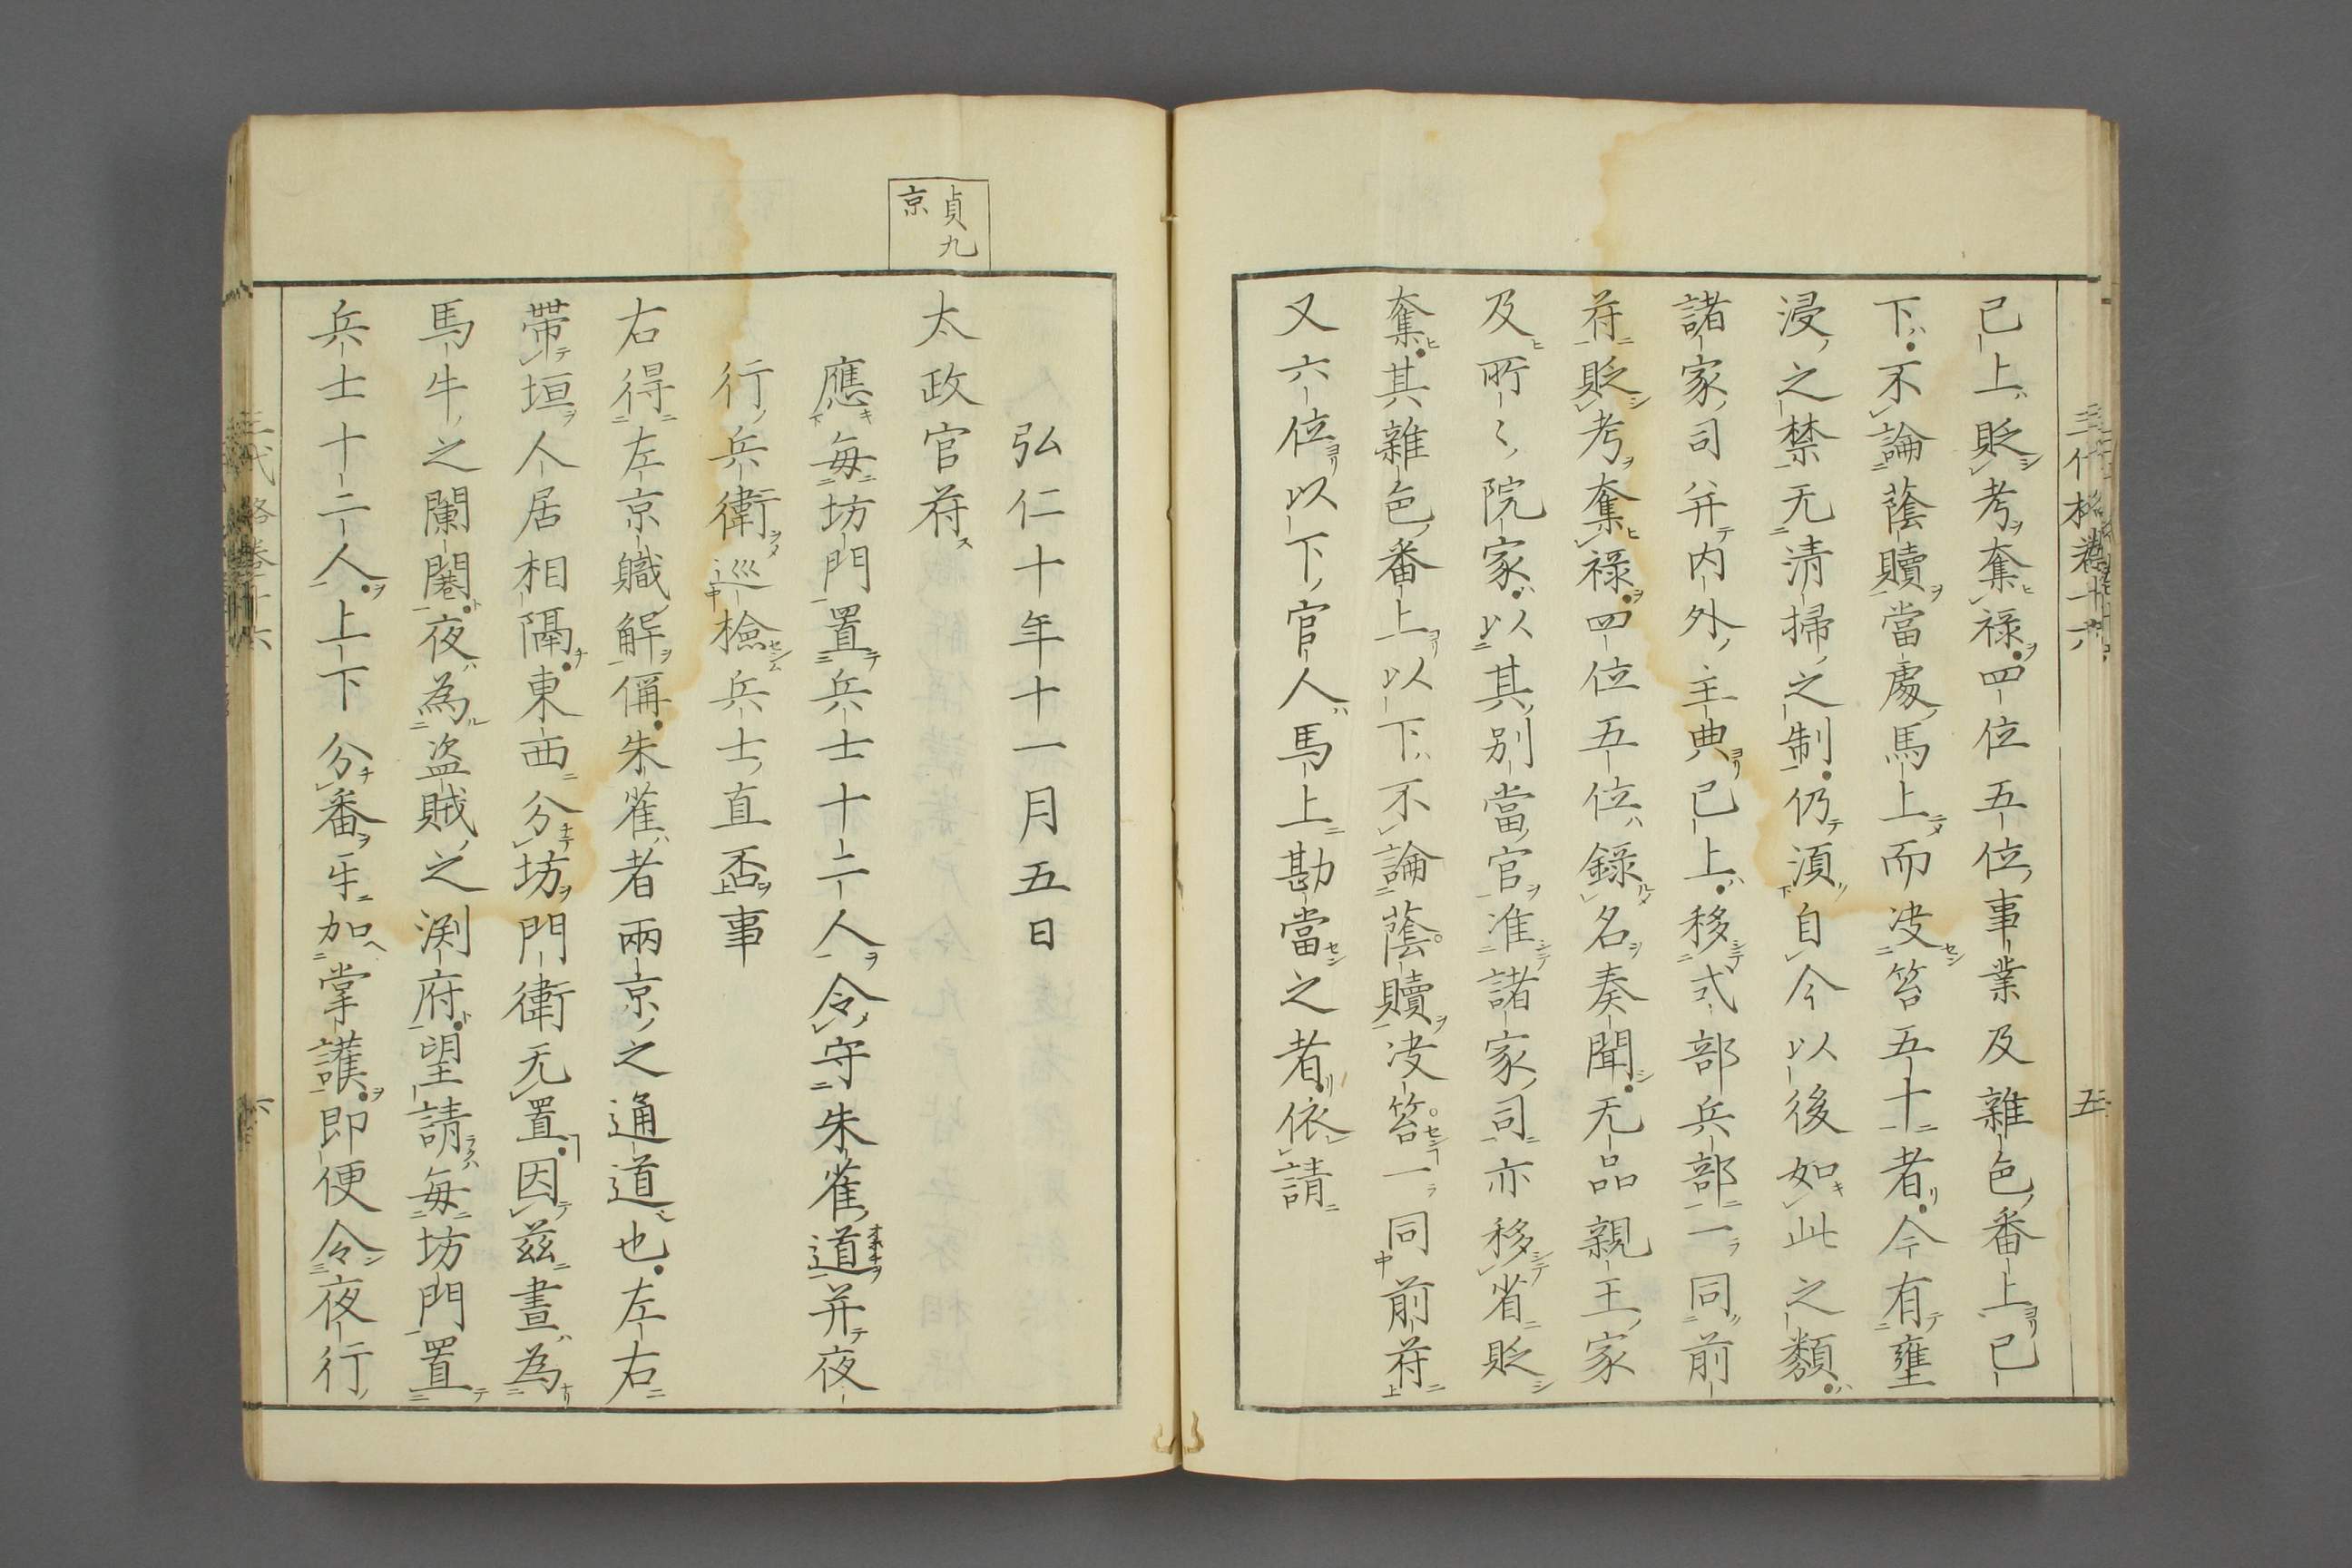 三代格卷十六 五
已上貶考奪祿四位五位事業及雜色番上已
下不論蔭贖當處馬上而决笞五十者今有壅
浸之禁无清掃之制仍湏自今以後如此之類
諸家司并内外主典已上移式部兵部一同前
符貶考奪祿四位五位錄名奏聞无品親王家
及所〻院家以其別當官准諸家司亦移省貶
奪其雜色番上以下不論蔭贖决笞一同前符
又六位以下官人馬上勘當之者依請
弘仁十年十一月五日
貞九
京
太政官符
應毎坊門置兵士十二人令守朱雀道并夜
行兵衛巡檢兵士直否事
右得左京職解偁朱雀者兩京之通道也左右
帶垣人居相隔東西分坊門衛无置因茲晝為
馬牛之闌闠夜為盗賊之渕府望請毎坊門置
兵士十二人上下分番互加掌護即便令夜行
三代格卷十六 六